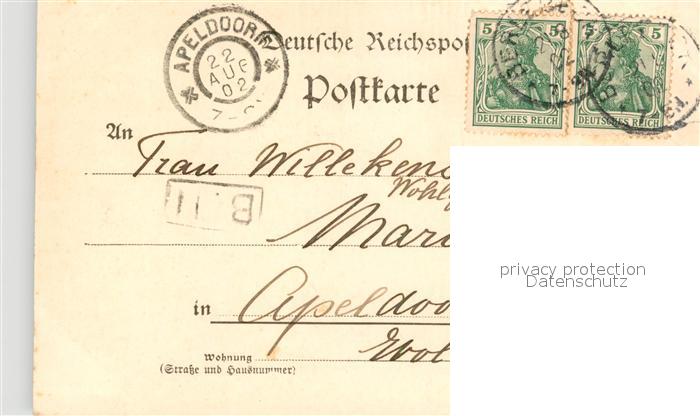 APELDOORN
22
AUG
02
Deutsche Reichspos
5 5
5 5
DEUTSCHES REICH
DEUTSCHES REICH
Postkarte
An
Frau Willekens
Wohlg
B. 11
Mari
in Apeldoo
Wohnung
(Straße und Hausnummer)
privacy protection
Datenschutz